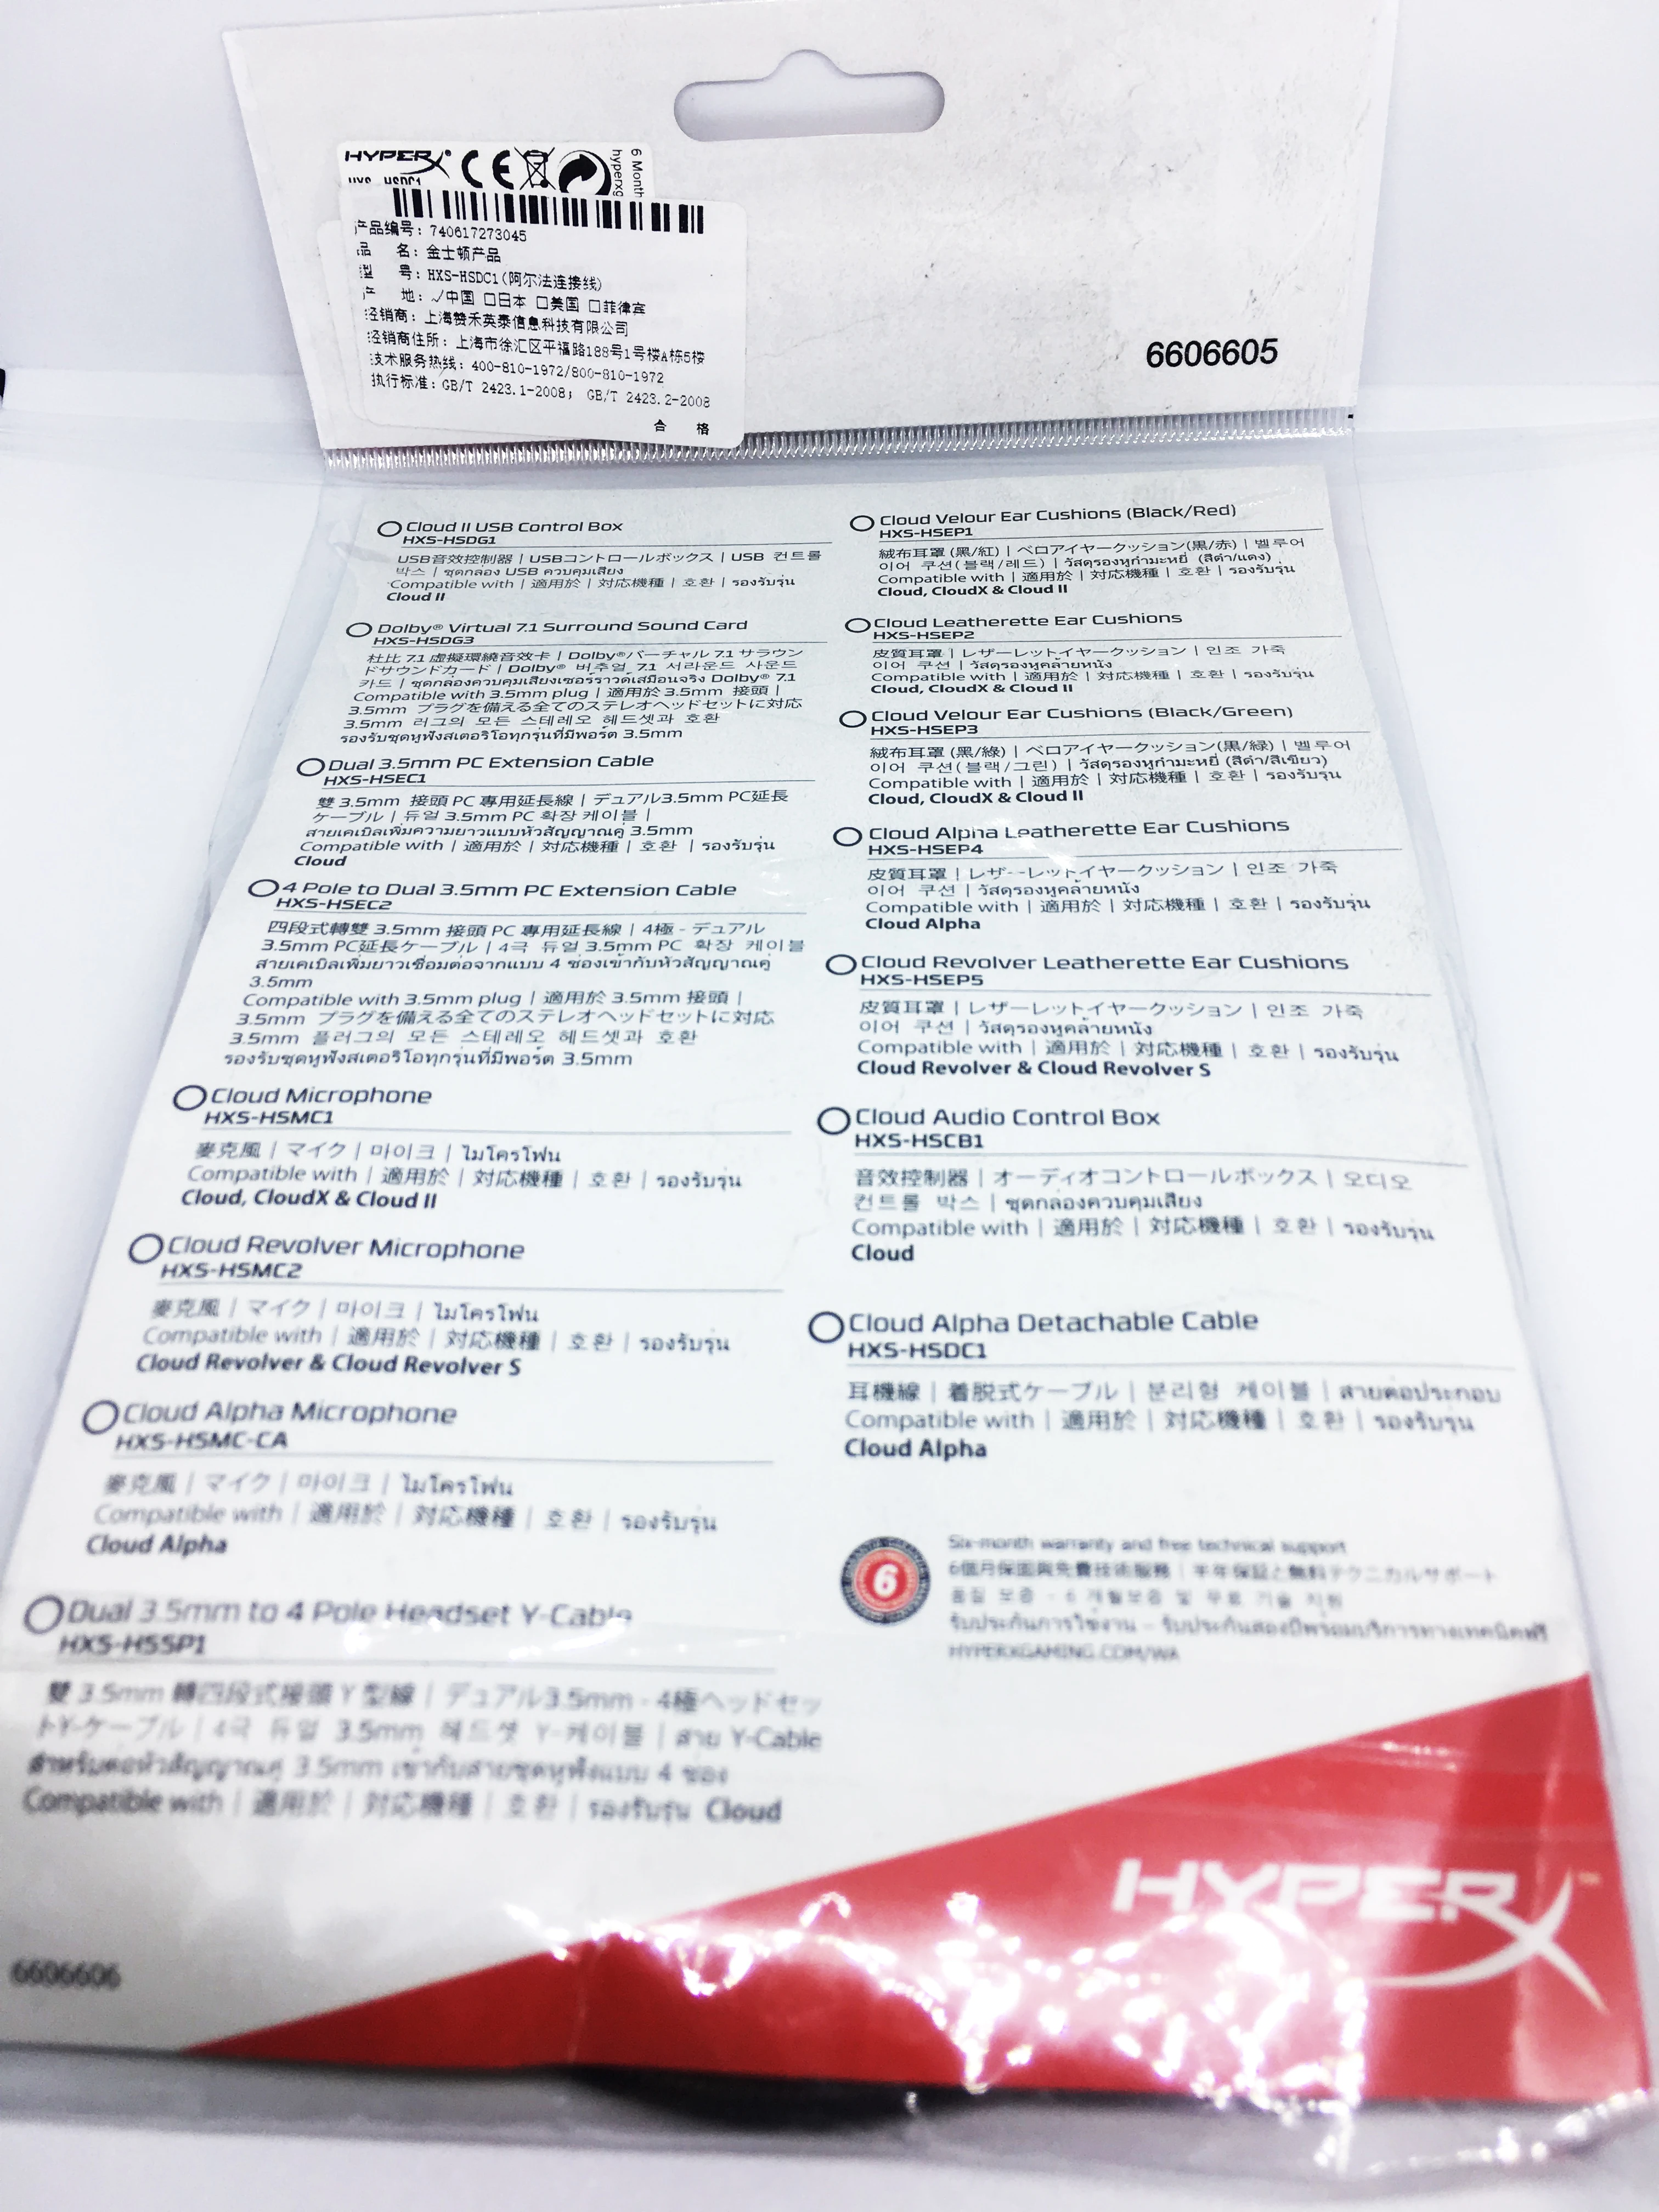 HYPERX
CE
6 Month
hyperxg
产品编号: 740617273045
品 名: 金士顿产品
型 号: HXS-HSDC1(阿尔法连接线)
产 地: ✓中国 □日本 □美国 □菲律宾
经销商: 上海赞禾英泰信息科技有限公司
经销商住所: 上海市徐汇区平福路188号1号楼A栋5楼
技术服务热线: 400-810-1972/800-810-1972
执行标准: GB/T 2423.1-2008; GB/T 2423.2-2008
合 格
6606605
Cloud II USB Control Box
HXS-HSDG1
USB音效控制器 | USBコントロールボックス | USB 컨트롤
박스 | ชุดกล่อง USB ควบคุมเสียง
Compatible with | 適用於 | 対応機種 | 호환 | รองรับรุ่น
Cloud II
Dolby® Virtual 7.1 Surround Sound Card
HXS-HSDG3
杜比 7.1 虛擬環繞音效卡 | Dolby®バーチャル 7.1 サラウン
ドサウンドカード | Dolby® 버추얼 7.1 서라운드 사운드
카드 | ชุดกล่องควบคุมเสียงเซอร์ราวด์เสมือนจริง Dolby® 7.1
Compatible with 3.5mm plug | 適用於 3.5mm 接頭 |
3.5mm プラグを備える全てのステレオヘッドセットに対応
3.5mm 러그의 모든 스테레오 헤드셋과 호환
รองรับชุดหูฟังสเตอริโอทุกรุ่นที่มีพอร์ต 3.5mm
Dual 3.5mm PC Extension Cable
HXS-HSEC1
雙 3.5mm 接頭 PC 專用延長線 | デュアル3.5mm PC延長
ケーブル | 듀얼 3.5mm PC 확장 케이블 |
สายเคเบิลเพิ่มความยาวแบบหัวสัญญาณคู่ 3.5mm
Compatible with | 適用於 | 対応機種 | 호환 | รองรับรุ่น
Cloud
4 Pole to Dual 3.5mm PC Extension Cable
HXS-HSEC2
四段式轉雙 3.5mm 接頭 PC 專用延長線 | 4極 - デュアル
3.5mm PC延長ケーブル | 4극 듀얼 3.5mm PC 확장 케이블
สายเคเบิลเพิ่มยาวเชื่อมต่อจากแบบ 4 ช่องเข้ากับหัวสัญญาณคู่
3.5mm
Compatible with 3.5mm plug | 適用於 3.5mm 接頭 |
3.5mm プラグを備える全てのステレオヘッドセットに対応
3.5mm 플러그의 모든 스테레오 헤드셋과 호환
รองรับชุดหูฟังสเตอริโอทุกรุ่นที่มีพอร์ต 3.5mm
Cloud Microphone
HXS-HSMC1
麥克風 | マイク | 마이크 | ไมโครโฟน
Compatible with | 適用於 | 対応機種 | 호환 | รองรับรุ่น
Cloud, CloudX & Cloud II
Cloud Revolver Microphone
HXS-HSMC2
麥克風 | マイク | 마이크 | ไมโครโฟน
Compatible with | 適用於 | 対応機種 | 호환 | รองรับรุ่น
Cloud Revolver & Cloud Revolver S
Cloud Alpha Microphone
HXS-HSMC-CA
麥克風 | マイク | 마이크 | ไมโครโฟน
Compatible with | 適用於 | 対応機種 | 호환 | รองรับรุ่น
Cloud Alpha
Dual 3.5mm to 4 Pole Headset Y-Cable
HXS-HSSP1
雙 3.5mm 轉四段式接頭 Y 型線 | デュアル3.5mm - 4極ヘッドセッ
トY-ケーブル | 4극 듀얼 3.5mm 헤드셋 Y-케이블 | สาย Y-Cable
สำหรับต่อหัวสัญญาณคู่ 3.5mm เข้ากับสายชุดหูฟังแบบ 4 ช่อง
Compatible with | 適用於 | 対応機種 | 호환 | รองรับรุ่น Cloud
6606606
Cloud Velour Ear Cushions (Black/Red)
HXS-HSEP1
絨布耳罩 (黑/紅) | ベロアイヤークッション(黒/赤) | 벨루어
이어 쿠션(블랙/레드) | วัสดุรองหูกำมะหยี่ (สีดำ/แดง)
Compatible with | 適用於 | 対応機種 | 호환 | รองรับรุ่น
Cloud, CloudX & Cloud II
Cloud Leatherette Ear Cushions
HXS-HSEP2
皮質耳罩 | レザーレットイヤークッション | 인조 가죽
이어 쿠션 | วัสดุรองหูคล้ายหนัง
Compatible with | 適用於 | 対応機種 | 호환 | รองรับรุ่น
Cloud, CloudX & Cloud II
Cloud Velour Ear Cushions (Black/Green)
HXS-HSEP3
絨布耳罩 (黑/綠) | ベロアイヤークッション(黒/緑) | 벨루어
이어 쿠션(블랙/그린) | วัสดุรองหูกำมะหยี่ (สีดำ/สีเขียว)
Compatible with | 適用於 | 対応機種 | 호환 | รองรับรุ่น
Cloud, CloudX & Cloud II
Cloud Alpha Leatherette Ear Cushions
HXS-HSEP4
皮質耳罩 | レザーレットイヤークッション | 인조 가죽
이어 쿠션 | วัสดุรองหูคล้ายหนัง
Compatible with | 適用於 | 対応機種 | 호환 | รองรับรุ่น
Cloud Alpha
Cloud Revolver Leatherette Ear Cushions
HXS-HSEP5
皮質耳罩 | レザーレットイヤークッション | 인조 가죽
이어 쿠션 | วัสดุรองหูคล้ายหนัง
Compatible with | 適用於 | 対応機種 | 호환 | รองรับรุ่น
Cloud Revolver & Cloud Revolver S
Cloud Audio Control Box
HXS-HSCB1
音效控制器 | オーディオコントロールボックス | 오디오
컨트롤 박스 | ชุดกล่องควบคุมเสียง
Compatible with | 適用於 | 対応機種 | 호환 | รองรับรุ่น
Cloud
Cloud Alpha Detachable Cable
HXS-HSDC1
耳機線 | 着脱式ケーブル | 분리형 케이블 | สายต่อประกอบ
Compatible with | 適用於 | 対応機種 | 호환 | รองรับรุ่น
Cloud Alpha
6
Six-month warranty and free technical support
6個月保固與免費技術服務 | 半年保証と無料テクニカルサポート
품질 보증 - 6 개월보증 및 무료 기술 지원
รับประกันการใช้งาน – รับประกันสองปีพร้อมบริการทางเทคนิคฟรี
HYPERXGAMING.COM/WA
HYPERX™